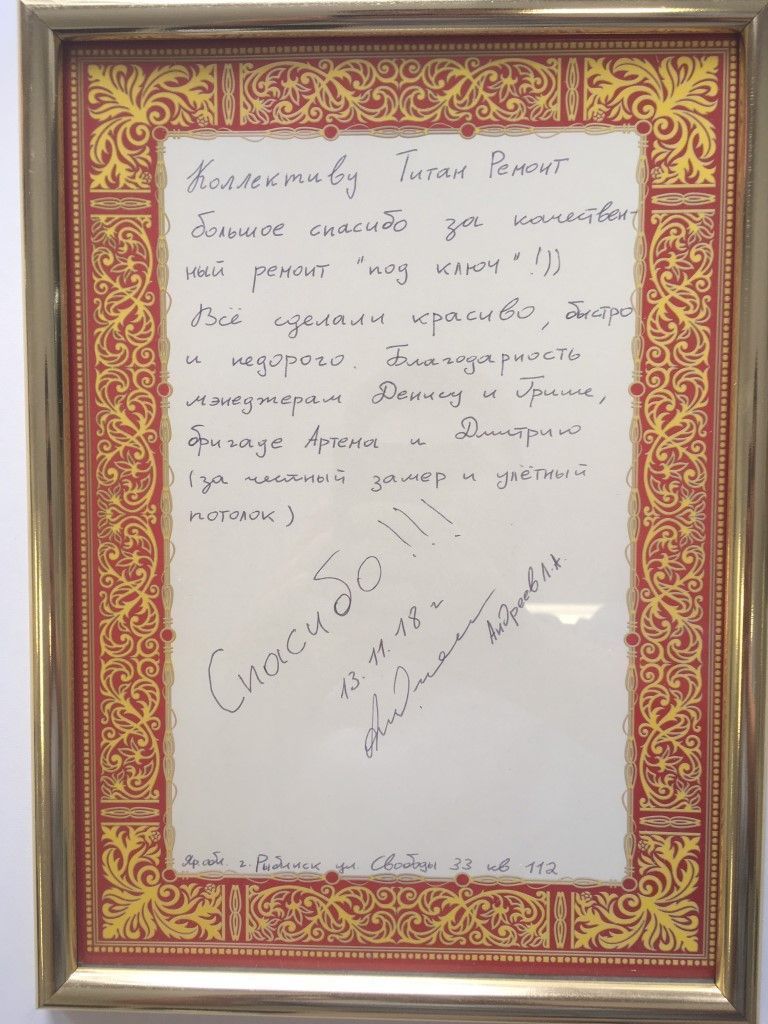 Коллективу Титан Ремонт
большое спасибо за качествен-
ный ремонт "под ключ"!))
Всё сделали красиво, быстро
и недорого. Благодарность
мэнеджерам Денису и Грише,
бригаде Артема и Дмитрию
(за честный замер и улётный
потолок)
Спасибо!!!
13.11.18 г
Андреев Л.А.
Яр.обл. г. Рыбинск ул. Свободы 33 кв 112